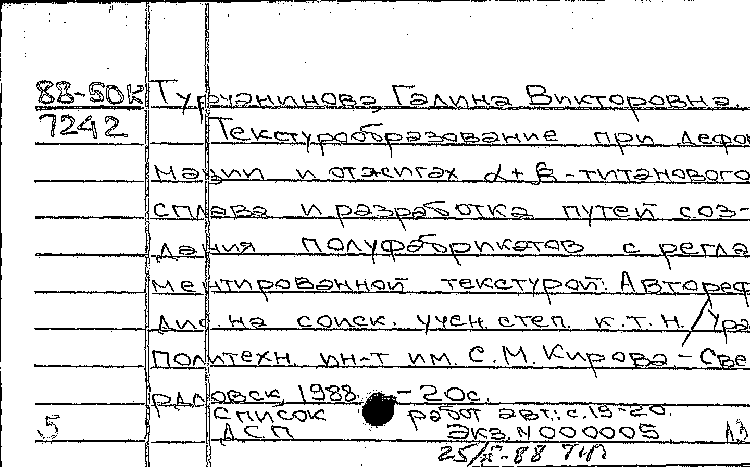 88-50К Турчанинова, Галина Викторовна.
7242 Текстурообразование при дефор
мации и отжигах α+β-титанового
сплава и разработка путей соз-
дания полуфабрикатов с регла
ментированной текстурой: Автореф
дис. на соиск. учен. степ. к.т.н. / Ура
Политехн. ин-т им. С.М. Кирова. - Све
рдловск, 1988. - 20с.
список работ авт.: с. 19-20.
5 ДСП Экз. N 000005